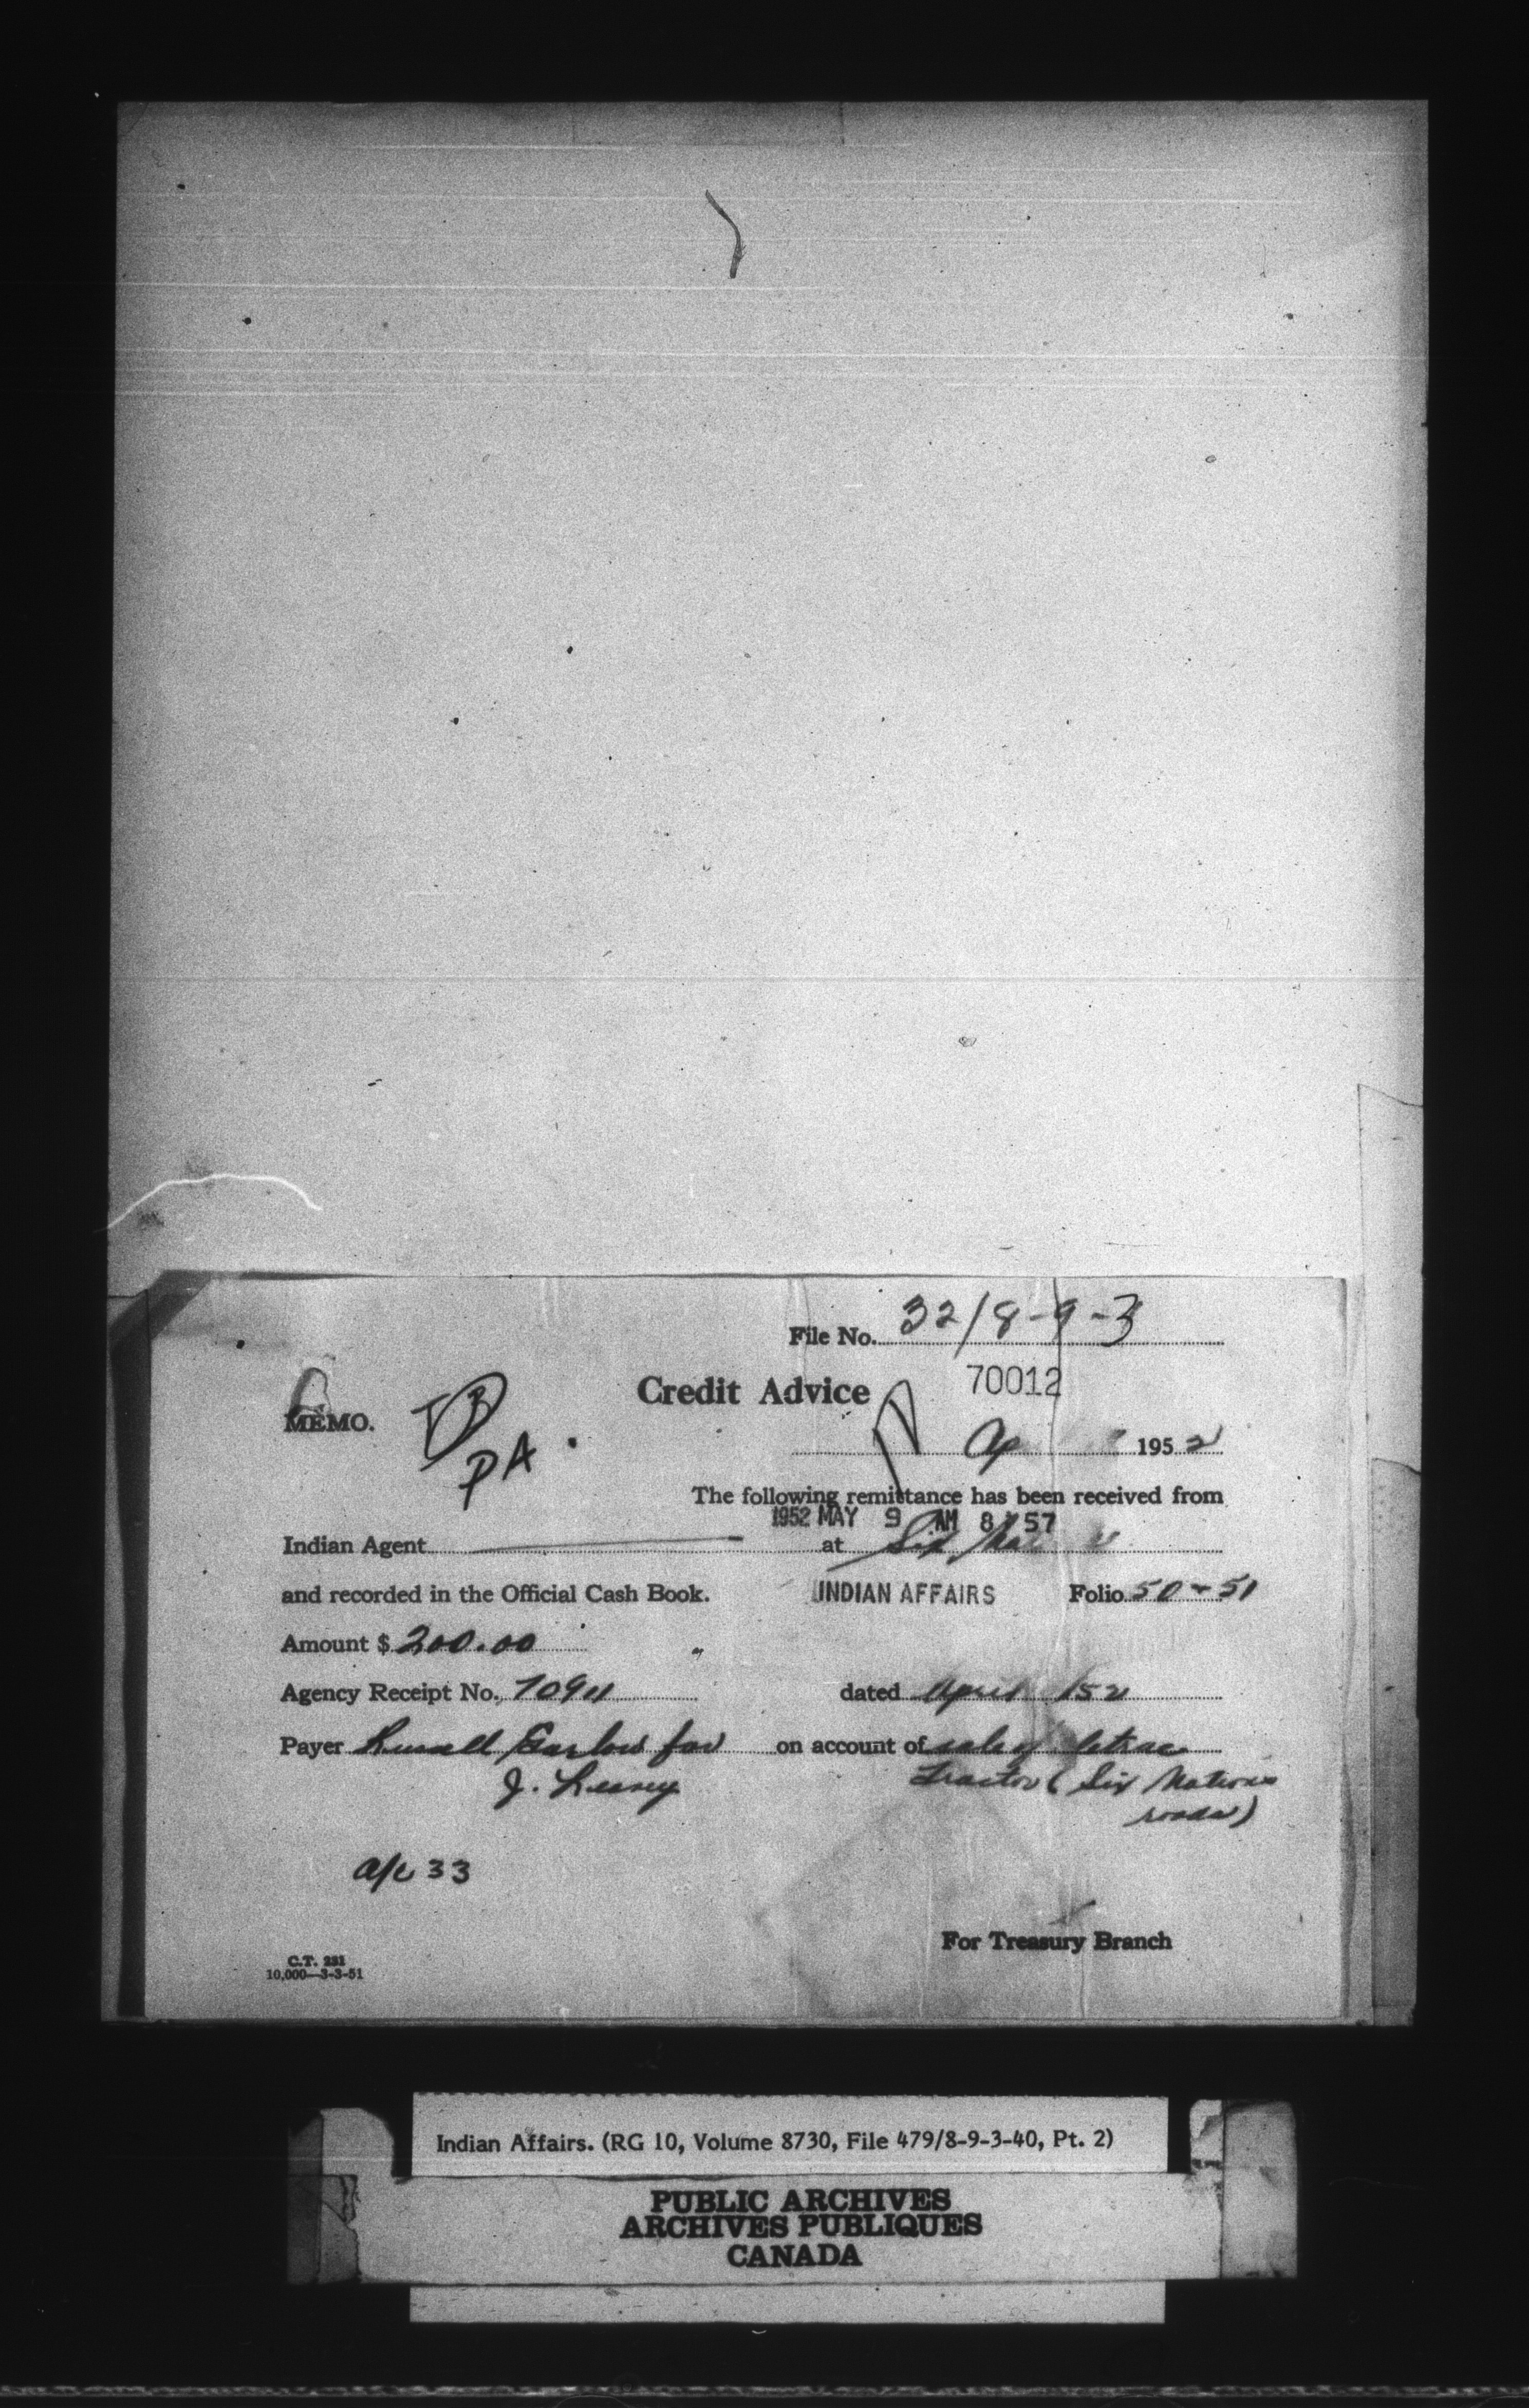 File No. 32/8-9-3
Credit Advice 70012
MEMO.
PA
Ap 195 2
The following remittance has been received from
1952 MAY 9 AM 8 57
Indian Agent at Six Na
and recorded in the Official Cash Book. INDIAN AFFAIRS Folio 50-51
Amount $ 200.00
Agency Receipt No. dated April /52
Payer Russell Garlow for on account of sale of Cletrac
J. Tractor (Six Nations
roads)
a/c 33
For Treasury Branch
C.T. 231
10,000—3-3-51
Indian Affairs. (RG 10, Volume 8730, File 479/8-9-3-40, Pt. 2)
PUBLIC ARCHIVES
ARCHIVES PUBLIQUES
CANADA